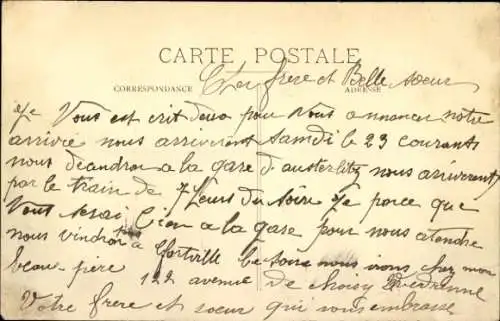 CARTE POSTALE
CORRESPONDANCE
ADRESSE
Cher frère et Belle soeur
Je Vous est crit deux pour Vous annoncer notre
arrivée nous arriveront Samdi le 23 courants
nous décendron a la gare d'austerlitz nous arriveront
par le train de 7 heurs du soire Je parce que
Vous serai bien a la gare pour nous atendre
nous viendron a Ce soire nous irons chez mon
beau père 122 avenue de choisy
Votre frere et soeur qui vous embrasse